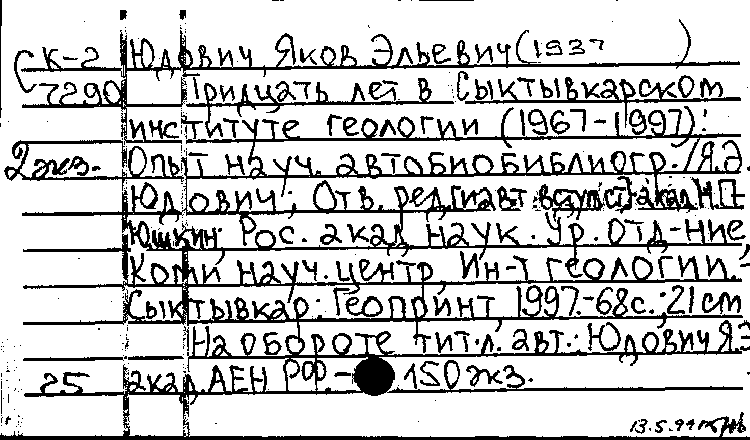 К-2 Юдович, Яков Эльевич (1937 )
7290 Тридцать лет в Сыктывкарском
институте геологии (1967-1997):
2 экз. Опыт науч. автобиобиблиогр. / Я.Э.
Юдович; Отв. ред. [и авт. вступ. ст.] акад. Н.П.
Юшкин; Рос. акад. наук. Ур. отд-ние,
Коми науч. центр, Ин-т геологии. -
Сыктывкар: Геопринт, 1997.-68с.; 21 см
На обороте тит. л. авт.: Юдович Я.Э.
25 акад. АЕН РФ. - 150 экз.
13.5.99